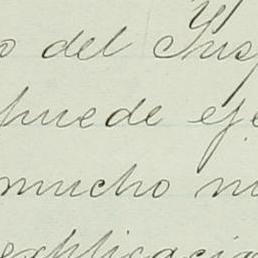 o del Insp
puede eje
mucho m
explicació